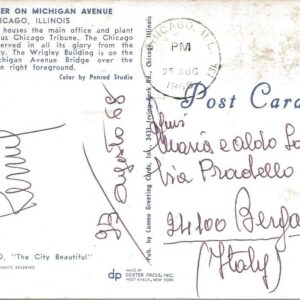 ER ON MICHIGAN AVENUE
ICAGO, ILLINOIS
houses the main office and plant
ous Chicago Tribune. The Chicago
served in all its glory from the
ty. The Wrigley Building is on the
Michigan Avenue Bridge over the
n right foreground.
Color by Penrod Studio
O, "The City Beautiful"
HTS RESERVED
Pub. by Cameo Greeting Cards, Inc., 3431 Irving Park Rd., Chicago, Illinois
MADE BY
dp DEXTER PRESS, INC.
WEST NYACK, NEW YORK
CHICAGO, ILL.
PM
25 AUG
Post Card
23 agosto 68
Maria e aldo
Via Pradello
24100 Berga
(Italy)